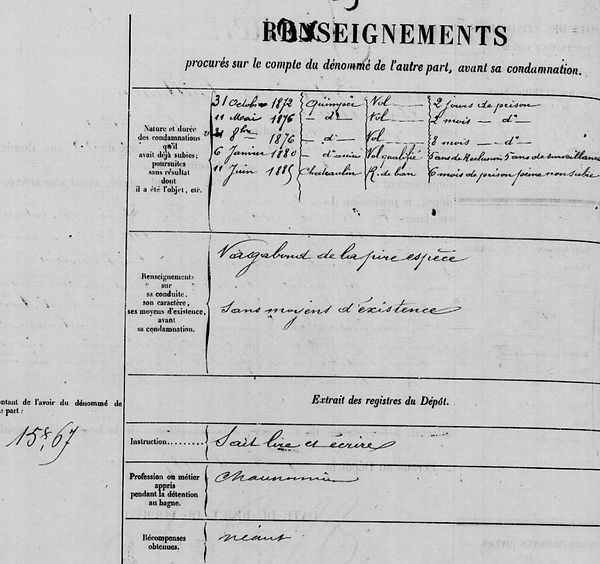 RENSEIGNEMENTS
procurés sur le compte du dénommé de l'autre part, avant sa condamnation.
Nature et durée
des condamnations
qu'il
avait déjà subies;
poursuites
sans résultat
dont
il a été l'objet, etc.
31 Octobre 1872 Quimper Vol 2 jours de prison
11 Mai 1876 — d° — Vol 2 mois — d° —
21 8bre 1876 — d° — Vol 8 mois — d° —
6 Janvier 1880 — d'assises Vol qualifié 5 ans de Reclusion 5 ans de surveillance
11 Juin 1885 Chateaulin R. de ban 6 mois de prison peine non subie
Renseignements
sur
sa conduite,
son caractère,
ses moyens d'existence,
avant
sa condamnation.
Vagabond de la pire espèce
Sans moyens d'existence
ontant de l'avoir du dénommé de
part:
15f,67
Extrait des registres du Dépôt.
Instruction.......... Sait lire et écrire
Profession ou métier
appris
pendant la détention
au bagne.
Récompenses
obtenues.
néant